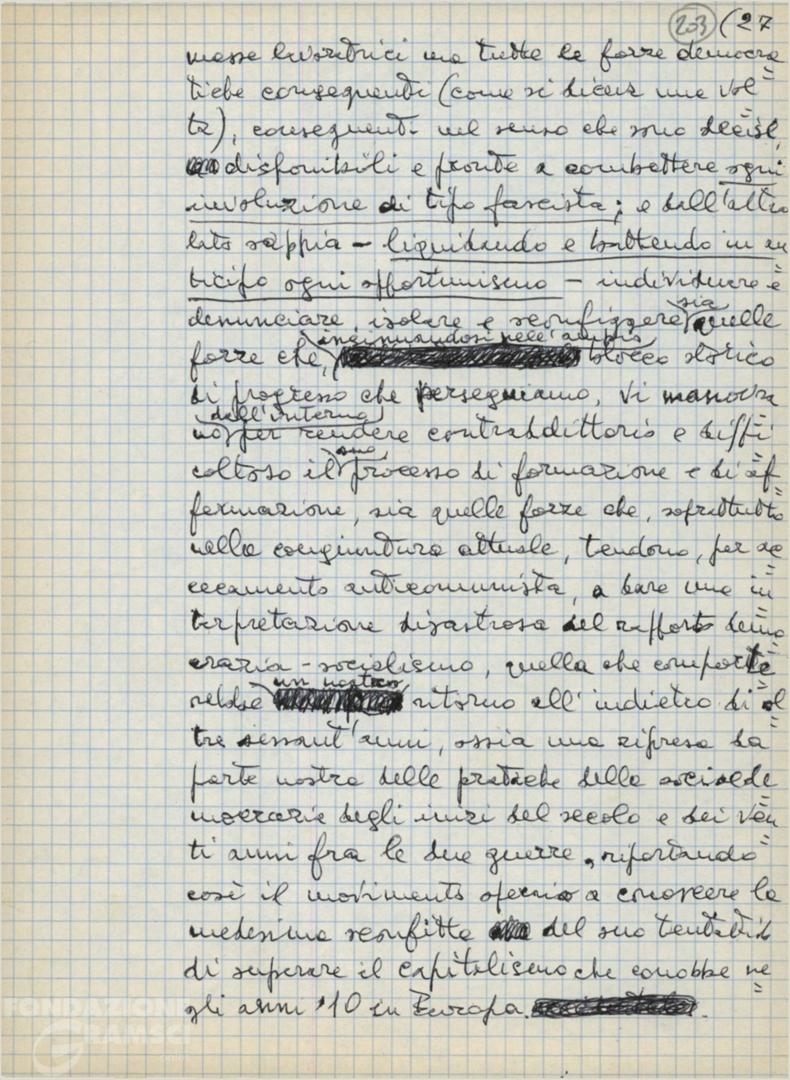 203 (27
masse lavoratrici ma tutte le forze democra=
tiche conseguenti (come si diceva una vol=
ta), conseguenti nel senso che sono decise,
disponibili e pronte a combattere ogni
involuzione di tipo fascista; e dall'altro
lato sappia – liquidando e battendo in an=
ticipo ogni opportunismo – individuare e
denunciare, isolare e sconfiggere sia quelle
forze che, insinuandosi nell'ampio blocco storico
di progresso che perseguiamo, vi manovra=
no dall'interno per rendere contraddittorio e diffi=
coltoso il suo processo di formazione e di af=
fermazione, sia quelle forze che, soprattutto
nella congiuntura attuale, tendono, per ac=
cecamento anticomunista, a dare una in=
terpretazione disastrosa del rapporto demo=
crazia – socialismo, quella che comporte=
rebbe un nostro ritorno all'indietro di ol=
tre sessant'anni, ossia una ripresa da
parte nostra delle pratiche della socialde=
mocrazia degli inizi del secolo e dei ven=
ti anni fra le due guerre, riportando
così il movimento operaio a conoscere la
medesima sconfitta del suo tentativo
di superare il capitalismo che conobbe ne=
gli anni '10 in Europa.
FONDAZIONE
GRAMSCI